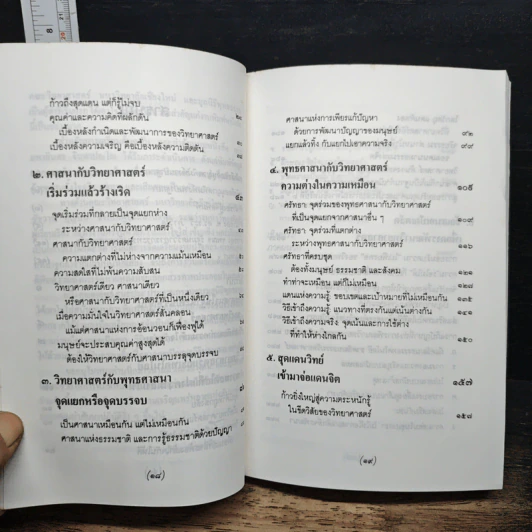 8
ก้าวถึงสุดแดน แต่ก็รู้ไม่จบ
คุณค่าและความคิดที่ผลักดัน
เบื้องหลังกำเนิดและพัฒนาการของวิทยาศาสตร์
เบื้องหลังความเจริญ คือเบื้องหลังความติดตัน
๒. ศาสนากับวิทยาศาสตร์
เริ่มร่วมแล้วร้างเริด
จุดเริ่มร่วมที่กลายเป็นจุดแยกห่าง
ระหว่างศาสนากับวิทยาศาสตร์
ศาสนากับวิทยาศาสตร์
ความแตกต่างที่ไม่ห่างจากความแม้นเหมือน
ความสดใสที่ไม่พ้นความสับสน
วิทยาศาสตร์เดียว ศาสนาเดียว
หรือศาสนากับวิทยาศาสตร์ที่เป็นหนึ่งเดียว
เมื่อความมั่นใจในวิทยาศาสตร์สั่นคลอน
แม้แต่ศาสนาแห่งการอ้อนวอนก็เฟื่องฟูได้
มนุษย์จะประสบคุณค่าสูงสุดได้
ต้องให้วิทยาศาสตร์กับศาสนาบรรลุจุดบรรจบ
๓. วิทยาศาสตร์กับพุทธศาสนา
จุดแยกหรือจุดบรรจบ
เป็นศาสนาเหมือนกัน แต่ไม่เหมือนกัน
ศาสนาแห่งธรรมชาติ และการรู้ธรรมชาติด้วยปัญญา
(๑๘)
ศาสนาแห่งการเพียรแก้ปัญหา
ด้วยการพัฒนาปัญญาของมนุษย์ ๙๒
แยกแล้วทิ้ง กับแยกไปเอาความจริง ๙๙
๔. พุทธศาสนากับวิทยาศาสตร์
ความต่างในความเหมือน ๑๐๕
ศรัทธา: จุดร่วมของพุทธศาสนากับวิทยาศาสตร์
ที่เป็นจุดแยกจากศาสนาอื่น ๆ ๑๐๙
ศรัทธา: จุดร่วมที่แตกต่าง
ระหว่างพุทธศาสนากับวิทยาศาสตร์ ๑๑๖
ศรัทธาที่ครบชุด
ต้องทั้งมนุษย์ ธรรมชาติ และสังคม ๑๒๑
ท่าท่าจะเหมือน แต่ก็ไม่เหมือน
แดนแห่งความรู้: ขอบเขตและเป้าหมายที่ไม่เหมือนกัน
วิธีเข้าถึงความรู้: แนวทางที่ตรงกันแต่เน้นต่างกัน
วิธีเข้าถึงความจริง: จุดเน้นและการใช้ต่าง
ที่ทำให้ห่างไกลกัน ๑๕๐
๕. สุดแดนวิทย์
เข้ามาจ่อแดนจิต ๑๕๗
ก้าวยิ่งใหญ่สู่ความตระหนักรู้
ในขีดวิสัยของวิทยาศาสตร์ ๑๕๘
(๑๙)